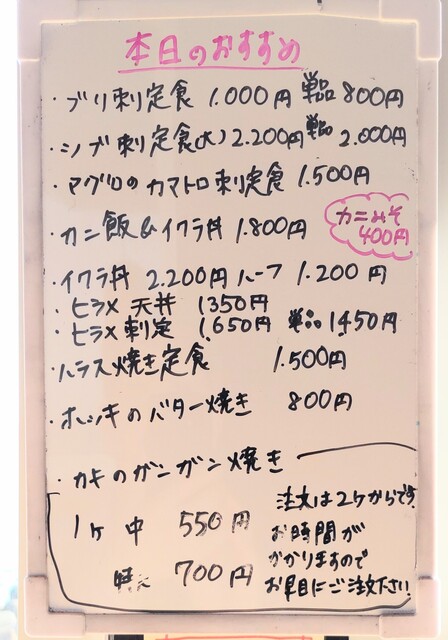 本日のおすすめ
・ブリ刺定食 1.000円 単品 800円
・シブ刺定食(大) 2.200円 単品 2.000円
・マグロのカマトロ刺定食 1.500円
・カニ飯&イクラ丼 1.800円
カニみそ
400円
・イクラ丼 2.200円 ハーフ 1.200円
・ヒラメ 天丼 1350円
・ヒラメ刺定 1.650円 単品 1450円
・ハラス焼き定食 1.500円
・ホッキのバター焼き 800円
・カキのガンガン焼き
1ヶ 中 550円
特大 700円
注文は2ヶからです。
お時間が
かかりますので
お早目にご注文下さい